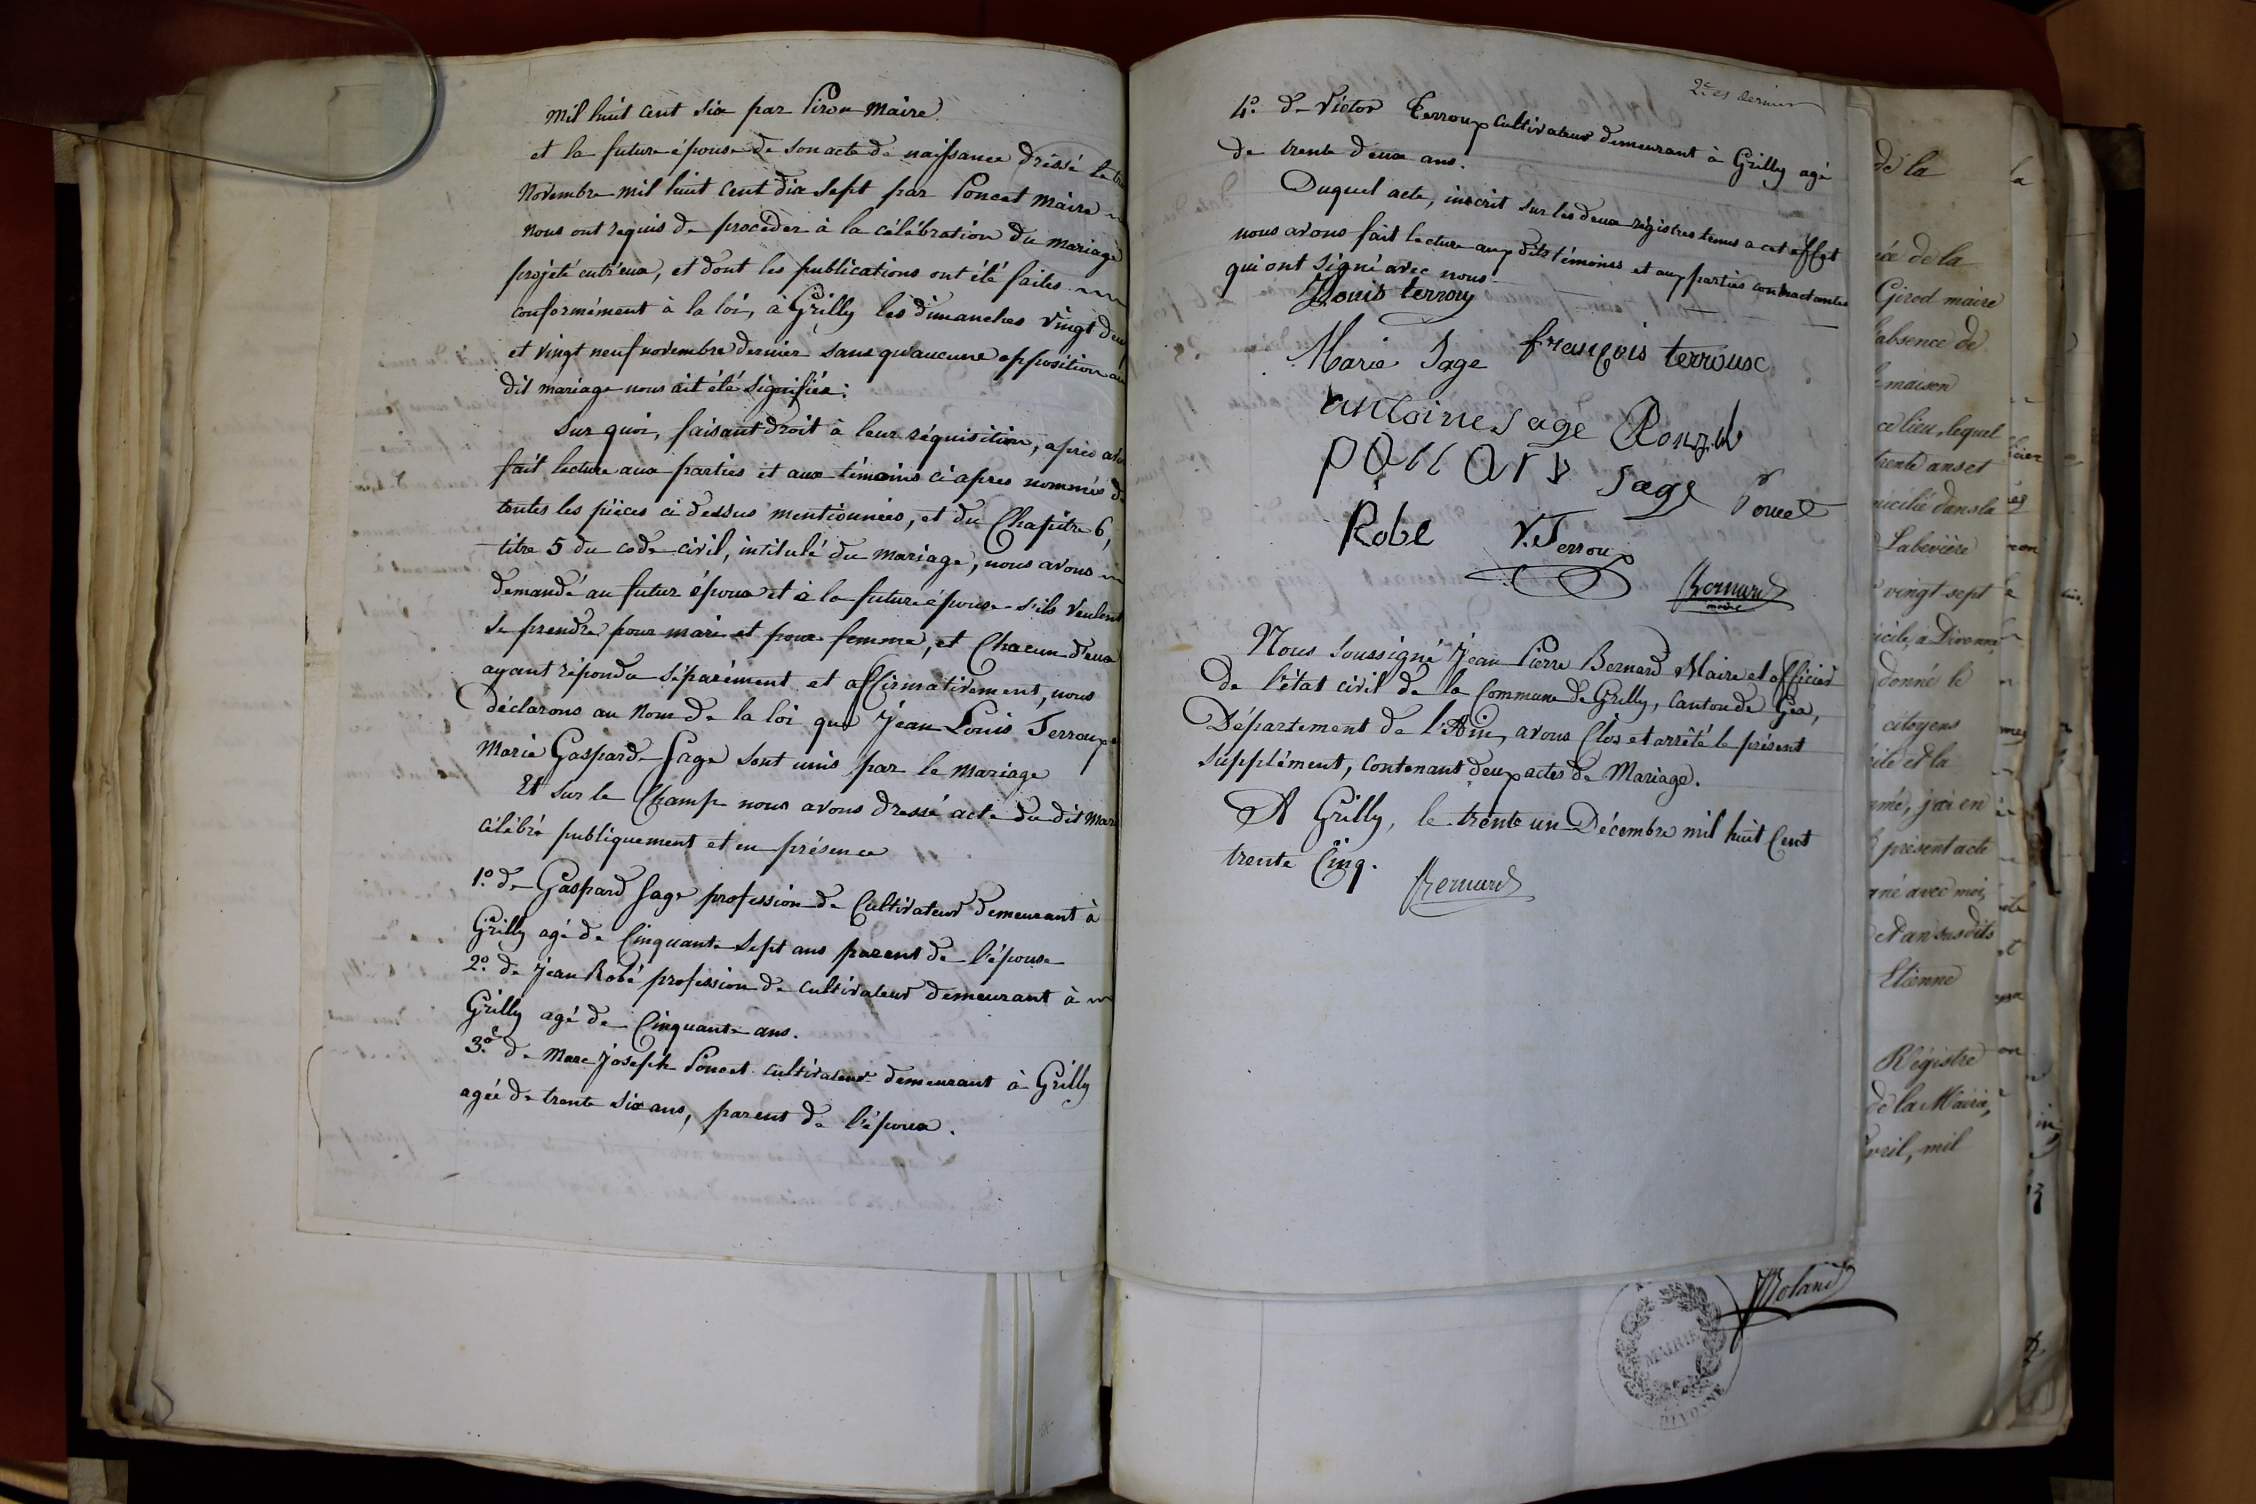 mil huit cent six par Piron maire
et la future épouse de son acte de naissance dressé le
Novembre mil huit cent dix sept par Poncet maire
nous ont requis de procéder à la célébration du mariage
projeté entr'eux, et dont les publications ont été faites
conformément à la loi, à Grilly les dimanches vingt deux
et vingt neuf novembre dernier sans qu'aucune opposition au
dit mariage nous ait été signifiée:
Sur quoi, faisant droit à leur réquisition, après avoir
fait lecture aux parties et aux témoins ci après nommés de
toutes les pièces ci dessus mentionnées, et du Chapitre 6,
titre 5 du code civil, intitulé du mariage, nous avons
demandé au futur époux et à la future épouse s'ils veulent
se prendre pour mari et pour femme, et Chacun d'eux
ayant répondu séparément et affirmativement, nous
déclarons au Nom de la loi que Jean Louis Terroux
Marie Gasparde Sage sont unis par le mariage
Et sur le Champ nous avons dressé acte du dit
célébré publiquement et en présence
1.º de Gaspard Sage profession de Cultivateur demeurant à
Grilly agé de Cinquante sept ans parent de l'épouse
2.º de Jean Robé profession de cultivateur demeurant à
Grilly agé de Cinquante ans.
3.º de Marc Joseph Poncet cultivateur demeurant à Grilly
agée de trente six ans, parent de l'époux.
2.e et dernier
4.º de Victor Terroux cultivateur demeurant à Grilly agé
de trente deux ans.
Duquel acte, inscrit sur les deux régistres tenus a cet effet
nous avons fait lecture aux dits témoins et aux parties contractantes
qui ont signé avec nous.
Louis terroux
Marie Sage françois terroux
antoine sage
Sage Poncet
Robe V. Terroux
Bernard
maire
Nous soussigné Jean Pierre Bernard Maire et officier
de l'état civil de la Commune de Grilly, canton de Gex,
Département de l'Ain, avons Clos et arrêté le présent
supplément, contenant deux actes de Mariage.
A Grilly, le trente un Décembre mil huit Cent
trente Cinq.
Bernard
de la
de la
Girod maire
absence de
maison
ce lieu, lequel
trente ans et
dans la
Labevière
vingt sept
à Divonne
donné le
citoyens
et la
j'ai en
présent acte
avec moi,
et an susdits
Etienne
Régistre
de la Mairie,
mil
Roland
MAIRIE
DIVONNE